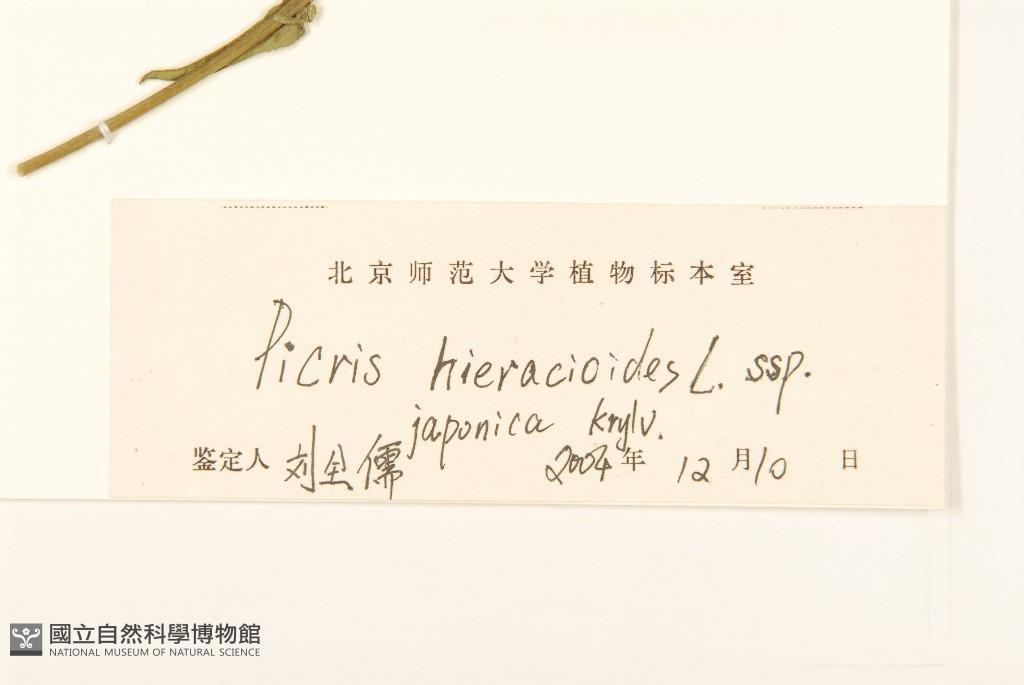 北京师范大学植物标本室
Picris hieracioides L. ssp.
japonica Krylv.
鉴定人 刘全儒 2004年 12月10日
國立自然科學博物館
NATIONAL MUSEUM OF NATURAL SCIENCE